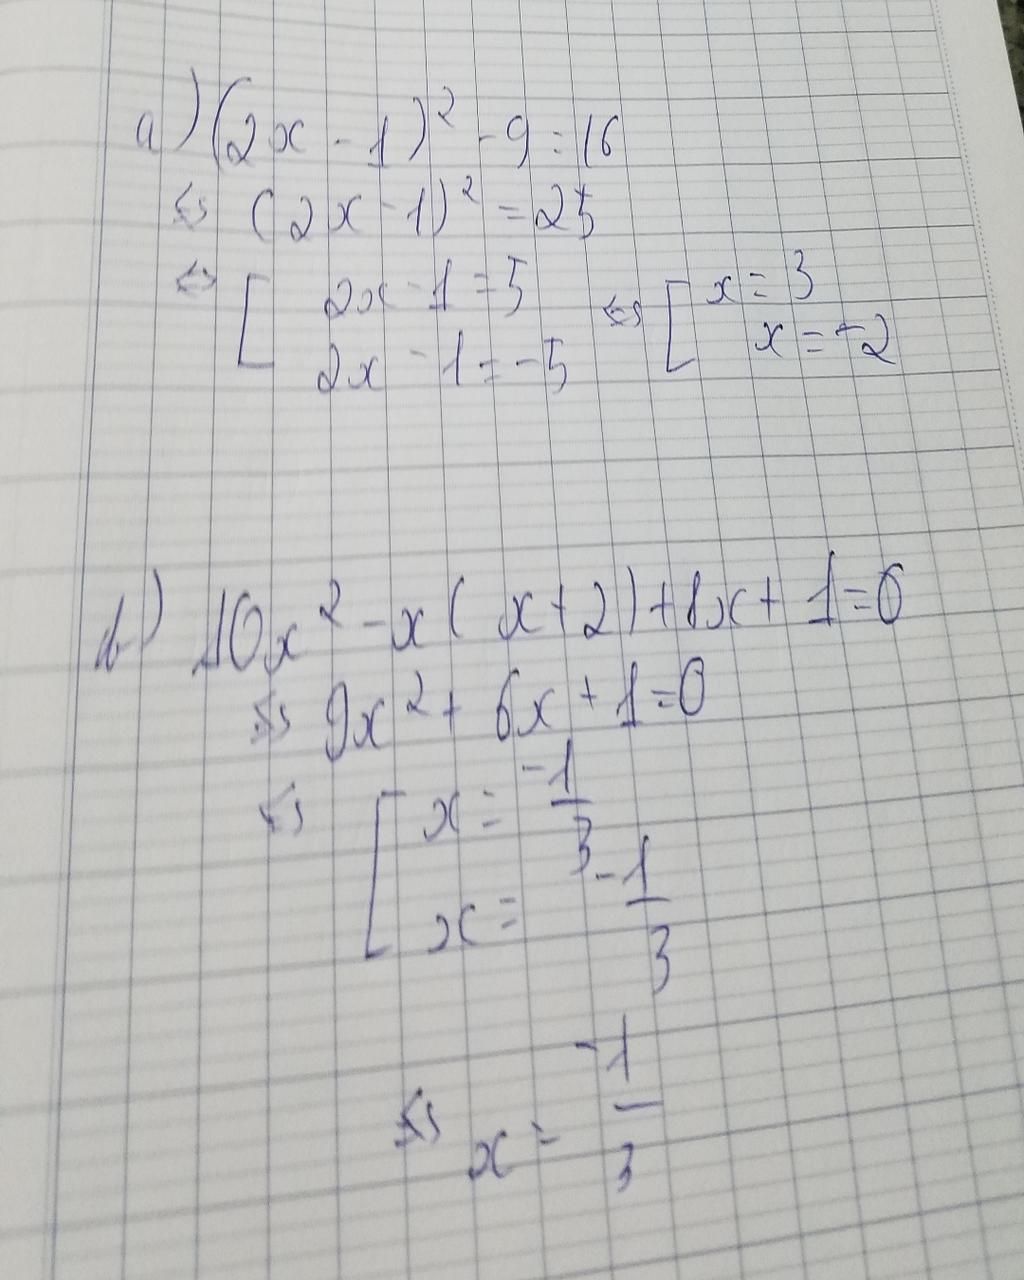 a) (2x - 1)² - 9 = 16
⇔ (2x - 1)² = 25
⇔ [ 2x - 1 = 5 ⇔ [ x = 3
2x - 1 = -5 x = -2
b) 10x² - x(x + 2) + 8x + 1 = 0
⇔ 9x² + 6x + 1 = 0
⇔ [ x = -1/3
x = -1/3
⇔ x = -1/3